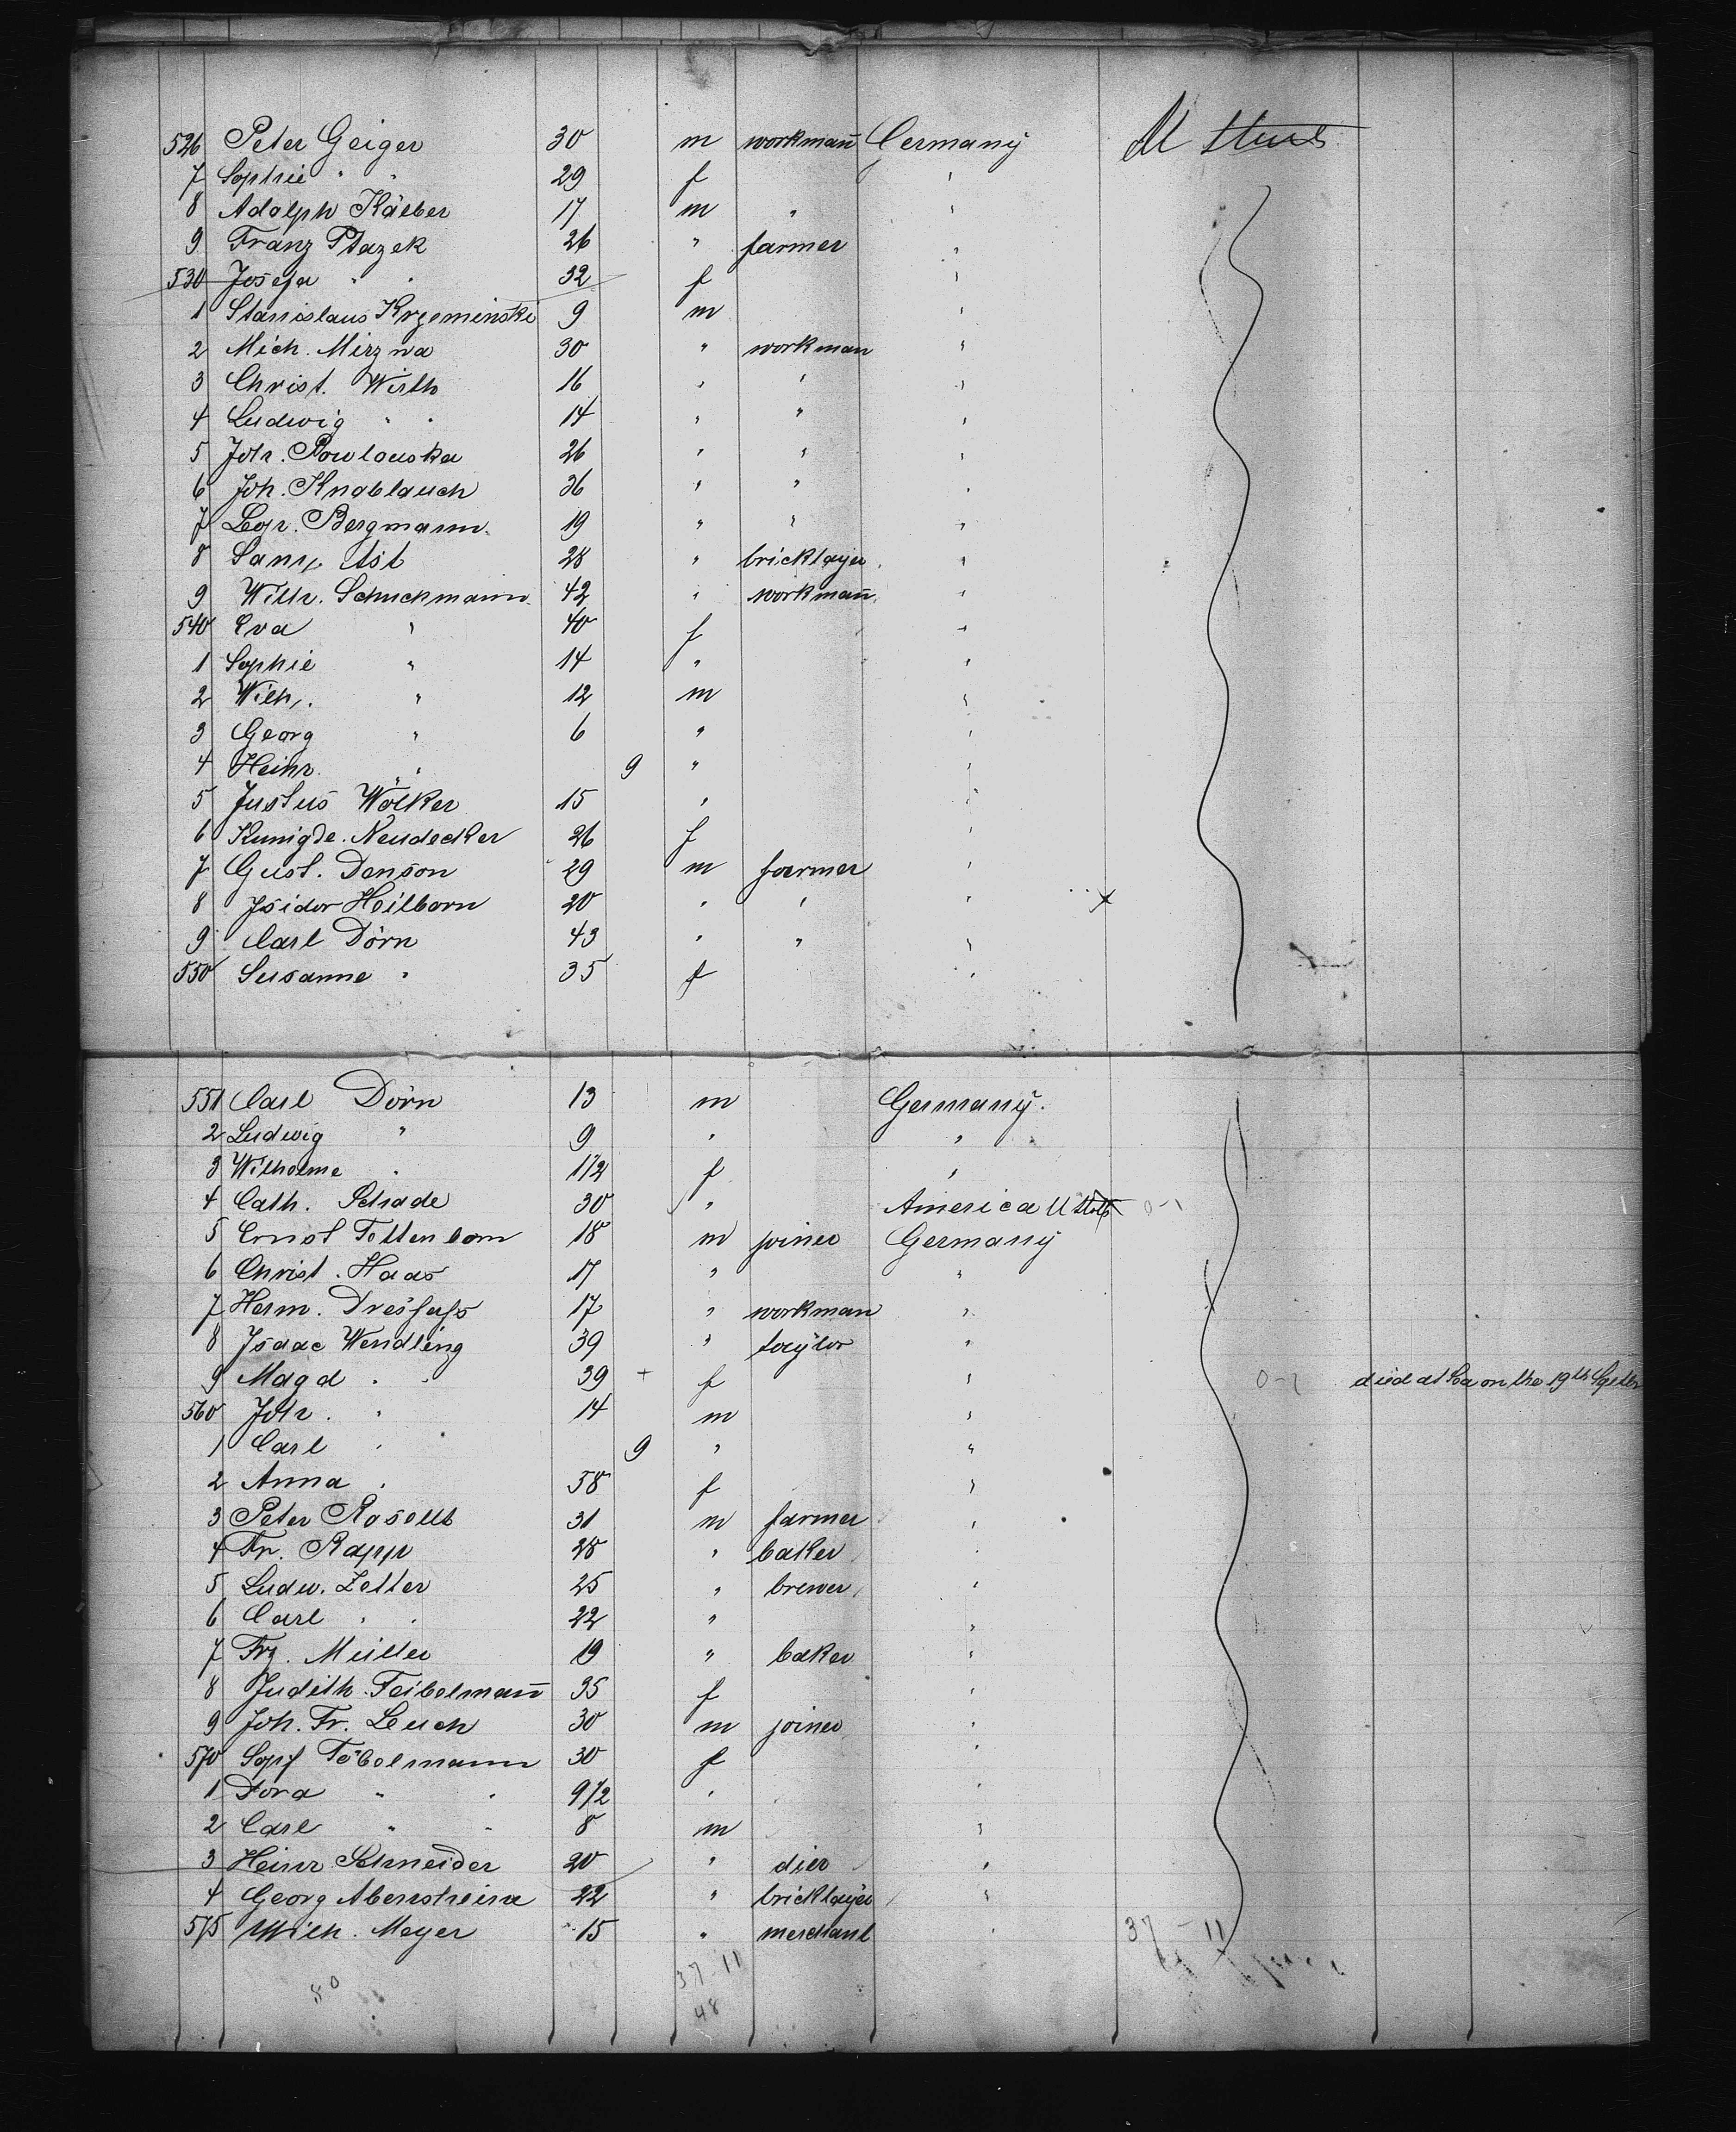 526 Peter Geiger 30 m workmañ Germany U States
7 Sophie " " 29 f "
8 Adolph Kälber 17 m " "
9 Franz Ptazek 26 " farmer "
530 Josefa " " 32 f "
1 Stanislaus Krzeminski 9 m "
2 Mich. Mirzwa 30 " workman "
3 Christ. Wirth 16 " " "
4 Ludwig " " 14 " " "
5 Joh. Powlouska 26 " " "
6 Joh. Knoblauch 36 " " "
7 Leop. Bergmann 19 " " "
8 28 " bricklayer "
9 Wilh. Schuckmann 42 " workmañ "
540 Eva " 40 f "
1 Sophie " 14 " "
2 Wilh. " 12 m "
3 Georg " 6 " "
4 Heinr. " " 9 " "
5 Justus Wölker 15 " "
6 Kunigde. Neudecker 26 f "
7 Gust. Denson 29 m farmer "
8 Isidor Heilborn 20 " " "
9 Carl Dörn 43 " " "
550 Susanne " 35 f "
551 Carl Dörn 13 m Germany.
2 Ludwig " 9 " "
3 Wilhelme " 1 1/2 f "
4 Cath. Schade 30 " America U States 0-1
5 Ernst Tottenbom 18 m joiner Germany
6 Christ. Haas 17 " "
7 Herm. Dresfahs 17 " workman "
8 Isaac Wendling 39 " taylor "
9 Magd " " 39 + f " died at Sea on the 19th Septbr
560 Joh. " 14 m "
1 Carl " 9 " "
2 Anna " 58 f "
3 Peter 31 m farmer "
4 Fr. Rapp 28 " baker "
5 Ludw. Zetter 25 " brewer "
6 Carl " " 22 " "
7 Frz. Müller 19 " baker "
8 Judith Feibelmañ 35 f "
9 Joh. Fr. Leuch 30 m joiner "
570 Sopf Föbelmann 30 f "
1 Dora " " 9 1/2 " "
2 Carl " " 8 m "
3 Heinr Schneider 20 " dier "
4 Georg Abensheim 22 " bricklayer "
575 Wilh. Meyer 15 " merchant " 37 - 11
37-11
80 48